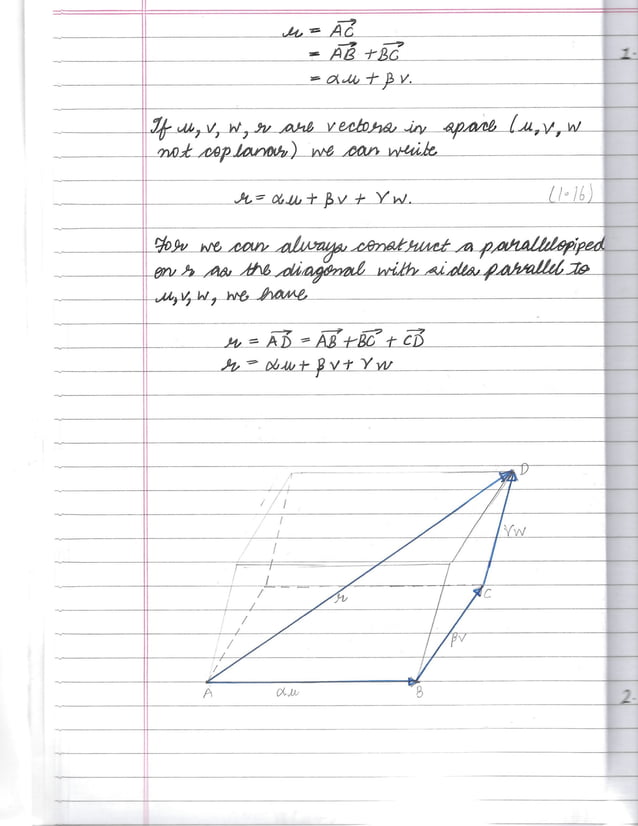 r = AC
= AB + BC
= αu + βv.
If u, v, w, r are vectors in space (u, v, w
not coplanar) we can write
r = αu + βv + γw. (1.16)
For we can always construct a parallelopiped
on r as the diagonal with sides parallel to
u, v, w, we have
r = AD = AB + BC + CD
r = αu + βv + γw
D
γw
r
C
βv
A
αu
B
1.
2.